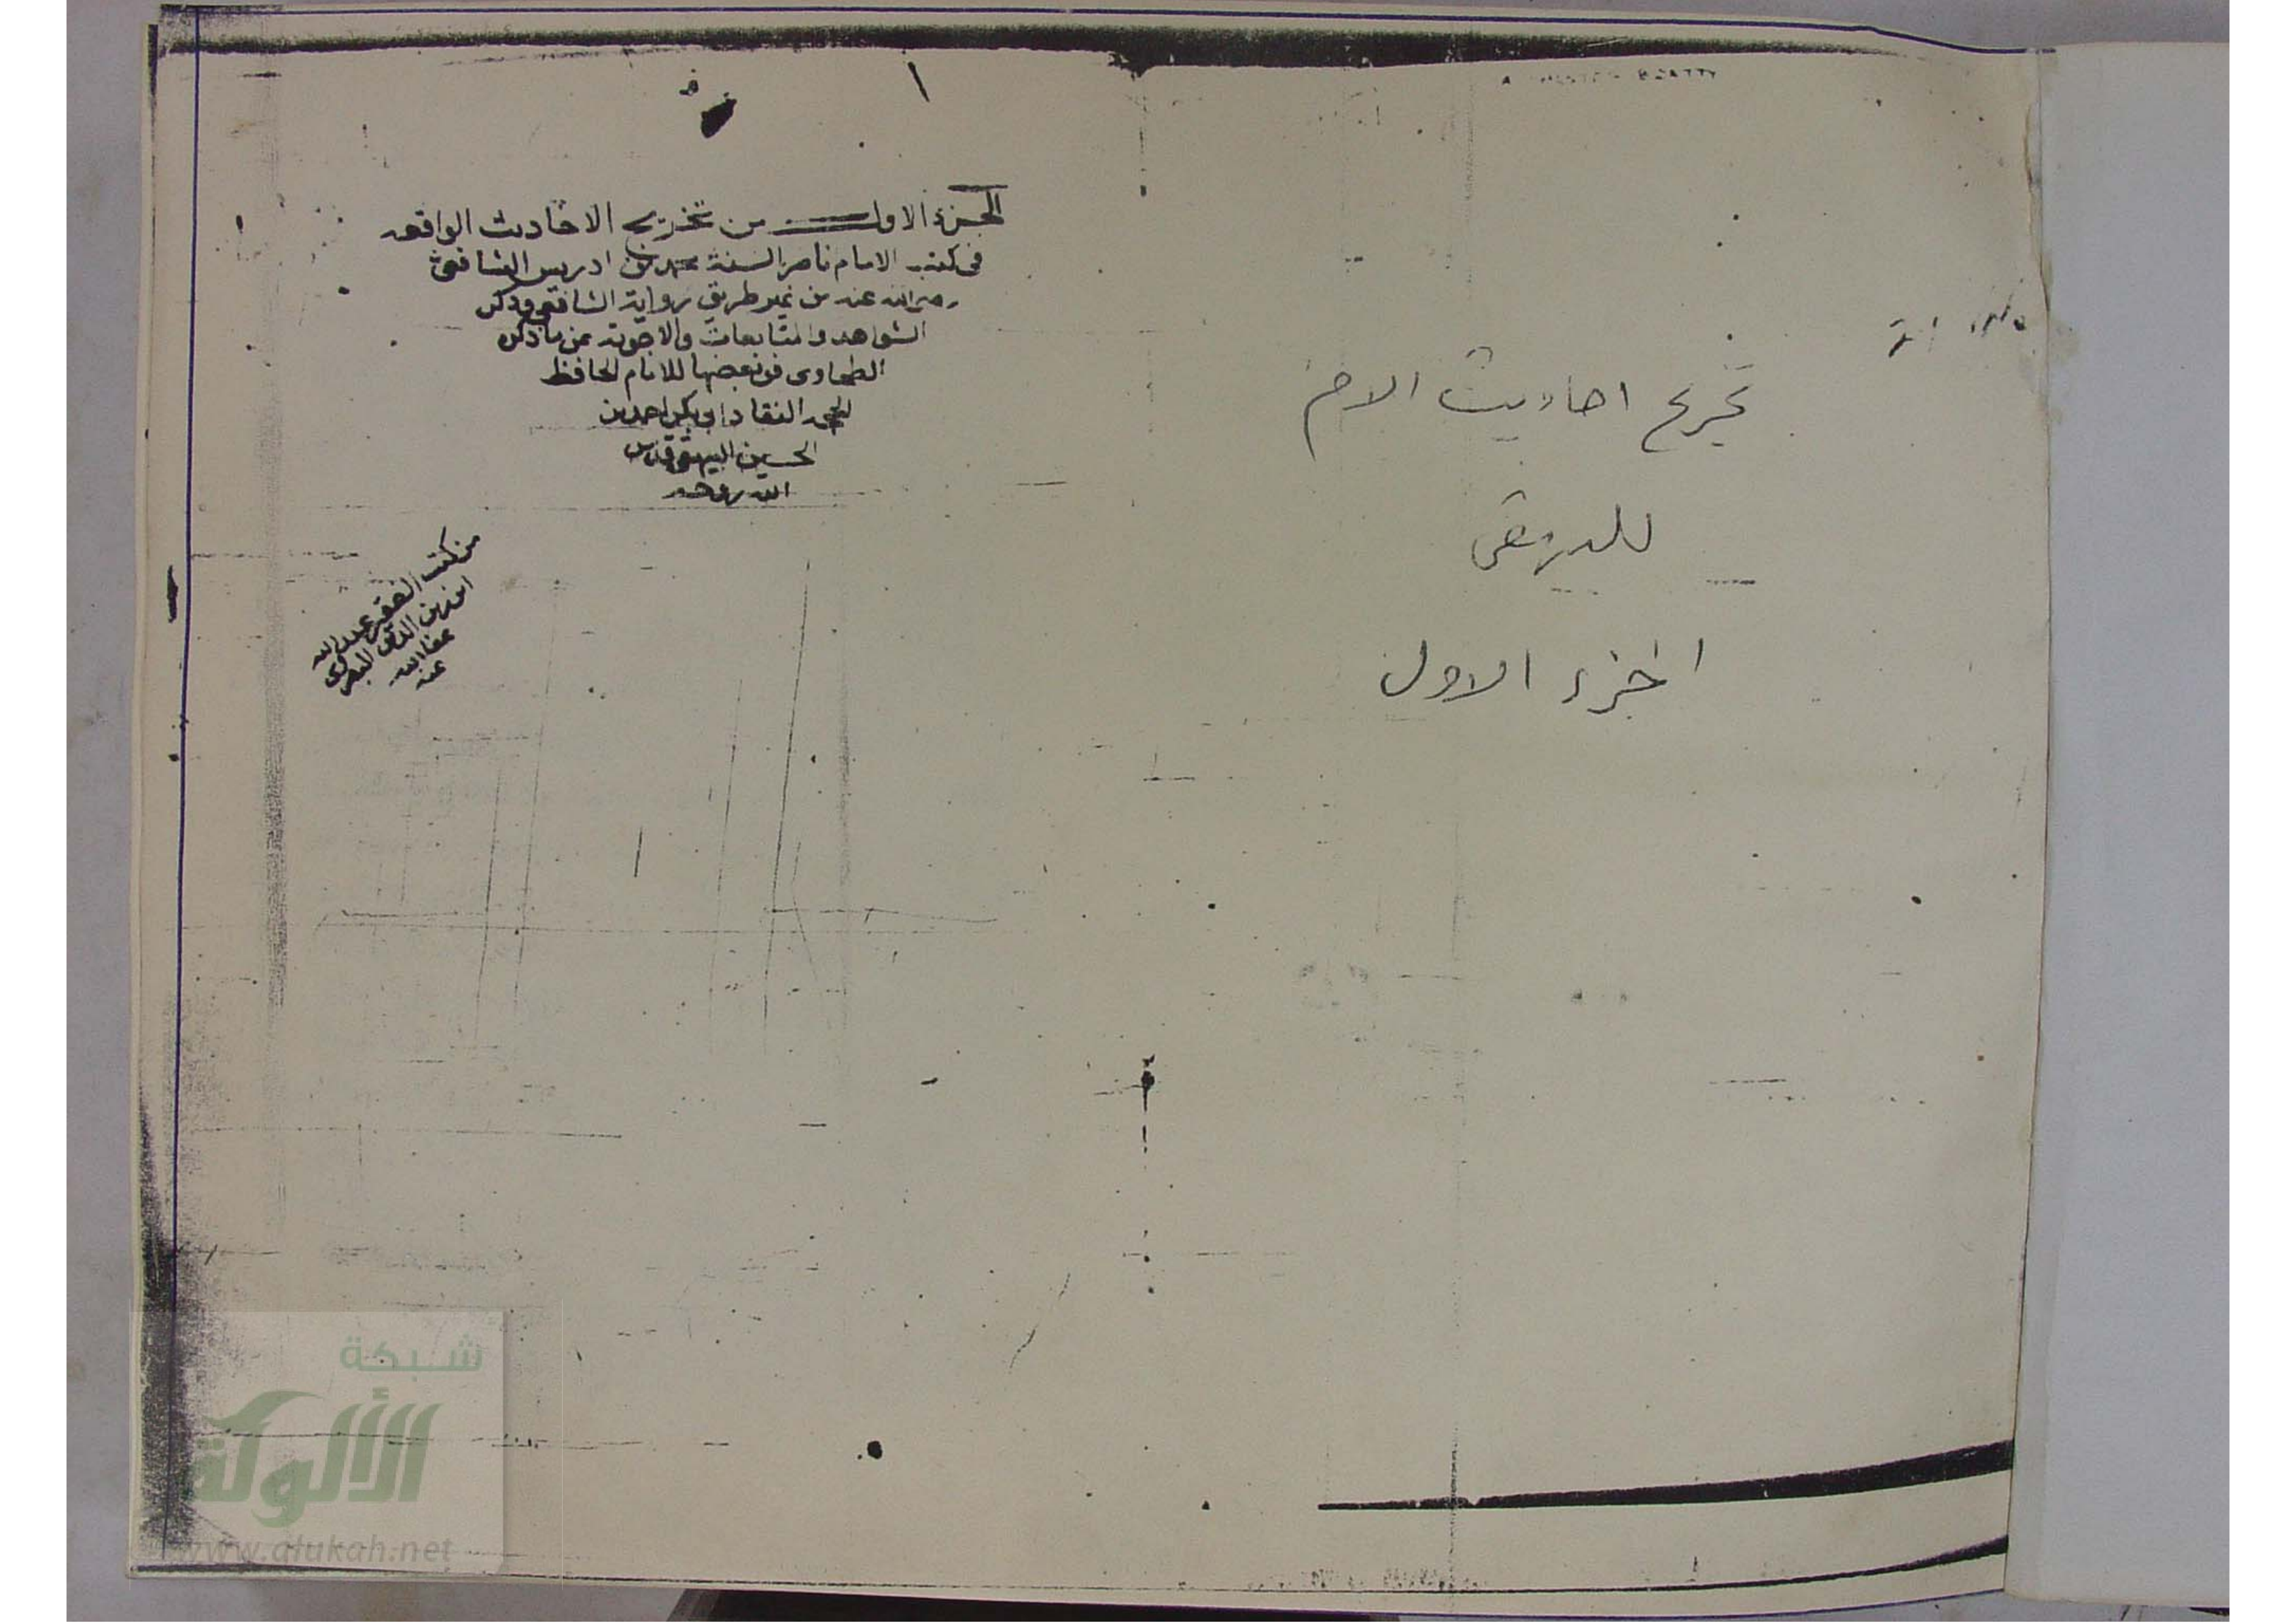 تخريج احاديث الام
للبيهقى
الجزء الاول
١
الجزء الاول من تخريج الاحاديث الواقعه
فى كتب الامام ناصر السنة محمد بن ادريس الشافعى
رضى الله عنه من غير طريق رواية الشافعى وذكر
الشواهد والمتابعات والاجوبة عن ما ذكره
الطحاوى فى بعضها للامام الحافظ
النقاد ابى بكر احمد بن
الحسين البيهقى قدس
الله روحه
من كتب الفقير عبد الله
ابن زين الدين البصرى
عفا الله
عنه
شبكة
الألوكة
www.alukah.net